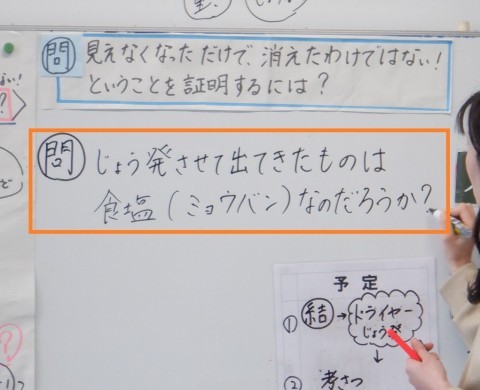 問 見えなくなっただけで、消えたわけではない!
ということを証明するには?
問 じょう発させて出てきたものは
食塩(ミョウバン)なのだろうか?
予定
① 結 → ドライヤー
じょう発
↓
② 考さつ